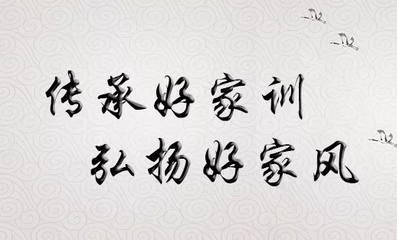 传承好家训
弘扬好家风